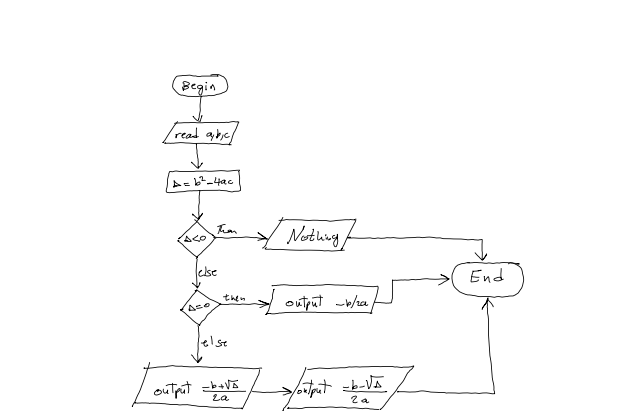 Begin
read a,b,c
Δ = b² - 4ac
Δ<0
then
Nothing
End
else
Δ=0
then
output -b/2a
else
output (-b+√Δ)/2a
output (-b-√Δ)/2a